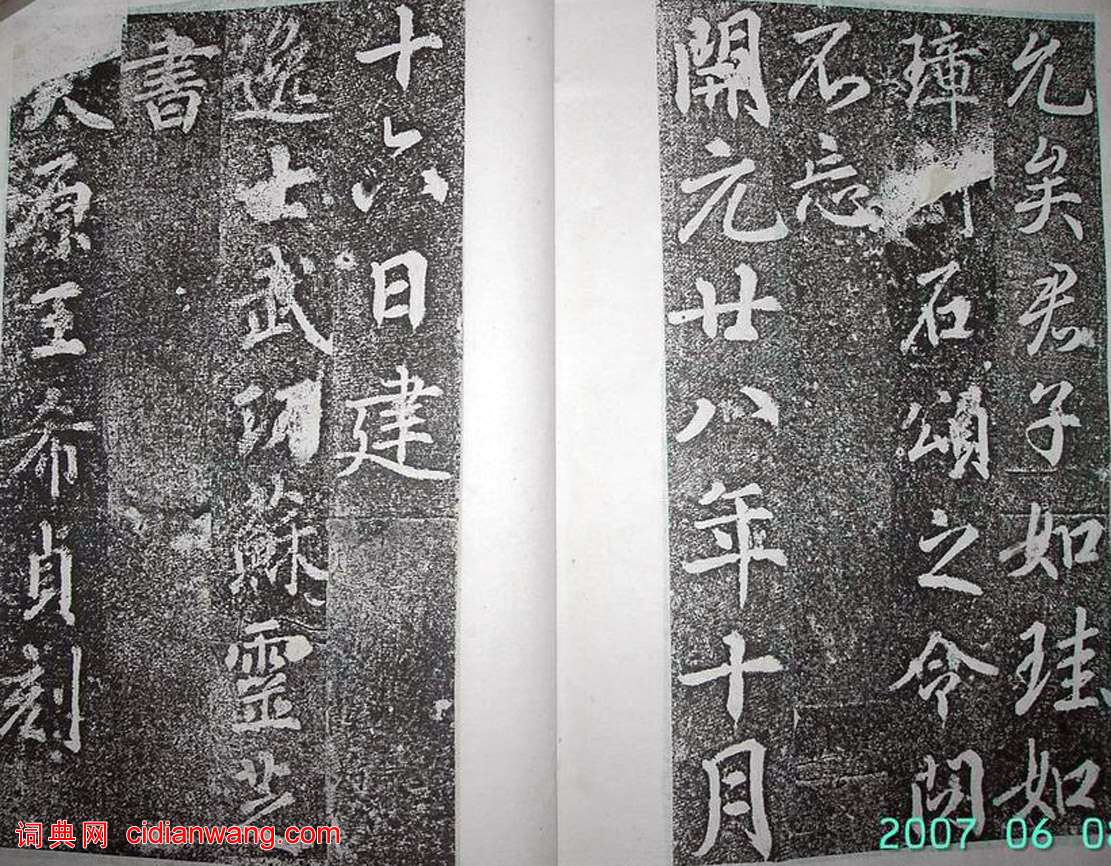 允矣君子如珪如
璋
石頌之令問
不忘
開元廿八年十月
十六日建
逸士武功蘇靈芝
書
太原王希貞刻
词典网 cidianwang.com
2007 06 0